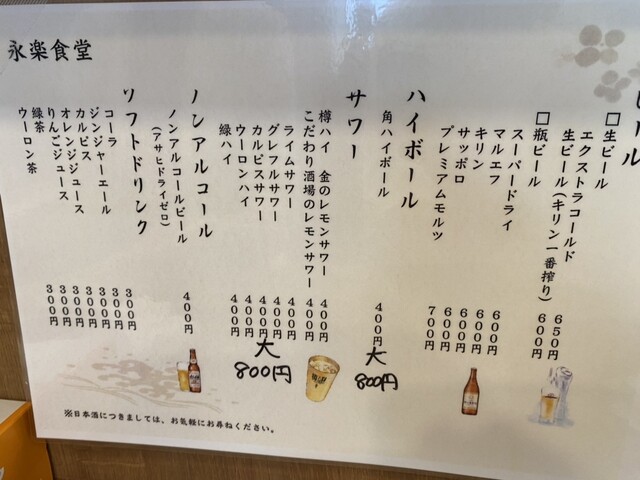 ール
□生ビール
エクストラコールド 650円
生ビール(キリン一番搾り) 600円
□瓶ビール
スーパードライ 600円
マルエフ 600円
キリン 600円
サッポロ 600円
プレミアムモルツ 700円
ハイボール
角ハイボール 400円
大
800円
サワー
樽ハイ 金のレモンサワー 400円
こだわり酒場のレモンサワー 400円
ライムサワー 400円
グレフルサワー 400円
カルピスサワー 400円
ウーロンハイ 400円
緑ハイ 400円
大
800円
ノンアルコール
ノンアルコールビール 400円
(アサヒドライゼロ)
ソフトドリンク
コーラ 300円
ジンジャーエール 300円
カルピス 300円
オレンジジュース 300円
りんごジュース 300円
緑茶 300円
ウーロン茶 300円
永楽食堂
※日本酒につきましては、お気軽にお尋ねください。